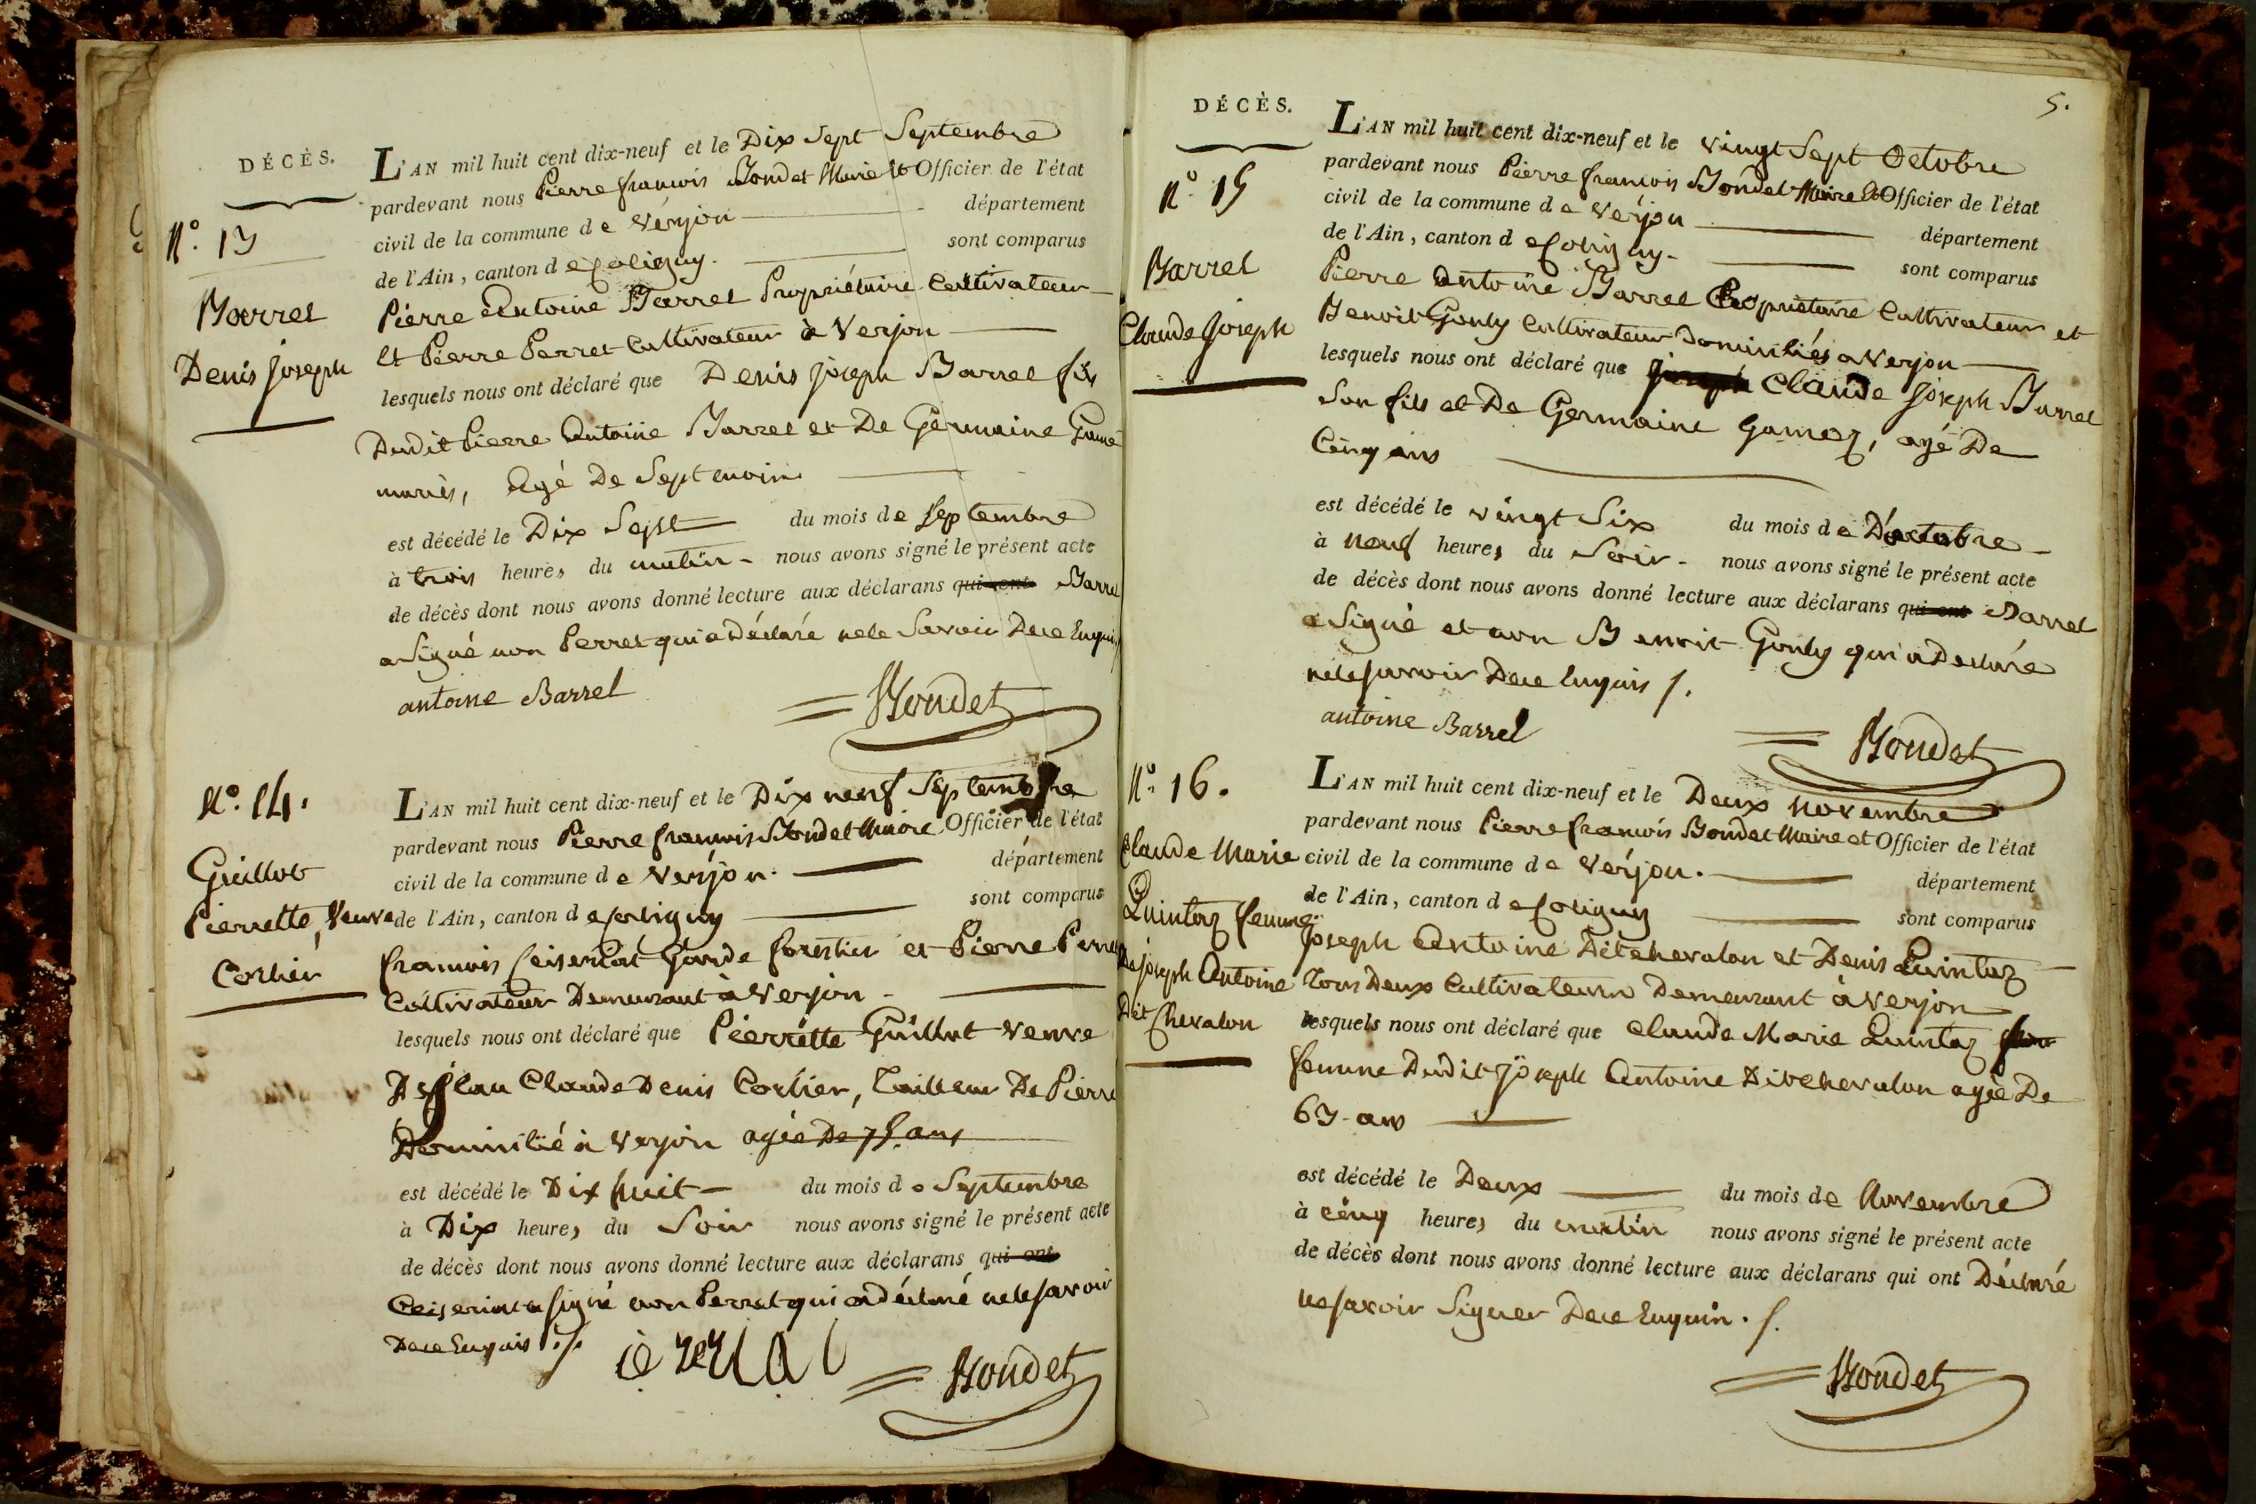 DÉCÈS.
N.° 13
Barrel
Denis Joseph
L'AN mil huit cent dix-neuf et le Dix Sept Septembre
pardevant nous Pierre françois Bondet Maire et Officier de l'état
civil de la commune de Verjon département
de l'Ain, canton de Coligny. sont comparus
Pierre Antoine Barrel Propriétaire Cultivateur
et Pierre Perret Cultivateur à Verjon
lesquels nous ont déclaré que Denis Joseph Barrel fils
Dudit Pierre Antoine Barrel et De Germaine Game
mariés, Agé De Sept mois
est décédé le Dix Sept du mois de Septembre
à trois heures du matin - nous avons signé le présent acte
de décès dont nous avons donné lecture aux déclarans qui ont Barrel
a Signé non Perret qui a Déclaré ne le Savoir De ce Enquis
antoine Barrel
Bondet
N.° 14.
Guillot
Pierrette, Veuve
Corlier
L'AN mil huit cent dix-neuf et le Dix neuf Septembre
pardevant nous Pierre françois Bondet Maire Officier de l'état
civil de la commune de Verjon. département
de l'Ain, canton de Coligny sont comparus
françois Ceiseriat Garde forestier et Pierre Perret
Cultivateur Demeurant à Verjon -
lesquels nous ont déclaré que Pierrette Guillot Veuve
De feu Claude Denis Corlier, Tailleur De Pierre
Domicilié à Verjon agée De 75 ans
est décédé le Dix huit - du mois de Septembre
à Dix heures du Soir nous avons signé le présent acte
de décès dont nous avons donné lecture aux déclarans qui ont
Ceiseriat a signé non Perret qui a déclaré ne le savoir
De ce Enquis ./.
Bondet
5.
DÉCÈS.
N.° 15
Barrel
Claude Joseph
L'AN mil huit cent dix-neuf et le vingt Sept Octobre
pardevant nous Pierre françois Bondet Maire et Officier de l'état
civil de la commune de Verjon département
de l'Ain, canton de Coligny - sont comparus
Pierre Antoine Barrel Propriétaire Cultivateur et
Benoit Gonly Cultivateur Domiciliés a Verjon
lesquels nous ont déclaré que Joseph Claude Joseph Barrel
Son fils et De Germaine Gamez, agé De
Cinq ans
est décédé le vingt Six du mois de D'octobre -
à neuf heures du Soir - nous avons signé le présent acte
de décès dont nous avons donné lecture aux déclarans qui ont Barrel
a Signé et non Benoit Gonly qui a Déclaré
ne le savoir De ce Enquis /.
antoine Barrel
Bondet
N.° 16.
Claude Marie
Quintaz femme
De Joseph Antoine
Dit Chevalon
L'AN mil huit cent dix-neuf et le Deux Novembre
pardevant nous Pierre françois Bondet Maire et Officier de l'état
civil de la commune de Verjon. département
de l'Ain, canton de Coligny sont comparus
Joseph Antoine Dit chevalon et Denis Quintaz
Tous Deux Cultivateurs Demeurant à Verjon
lesquels nous ont déclaré que Claude Marie Quintaz
femme Dudit Joseph Antoine Dit chevalon agée De
63 ans
est décédé le Deux du mois de Novembre
à cinq heures du matin nous avons signé le présent acte
de décès dont nous avons donné lecture aux déclarans qui ont Déclaré
ne savoir Signer De ce Enquis. /.
Bondet